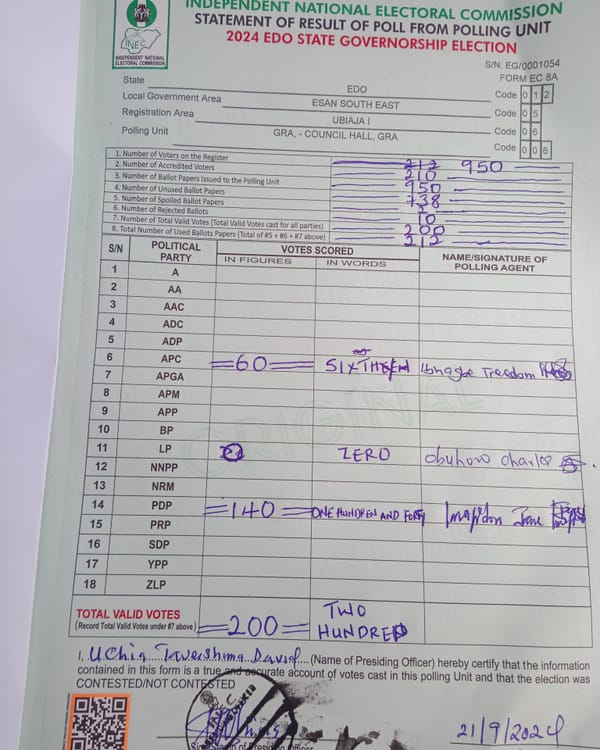 INDEPENDENT NATIONAL ELECTORAL COMMISSION
STATEMENT OF RESULT OF POLL FROM POLLING UNIT
2024 EDO STATE GOVERNORSHIP ELECTION
INEC
INDEPENDENT NATIONAL
ELECTORAL COMMISSION
S/N: EG/0001054
FORM EC 8A
State EDO Code 0 1 2
Local Government Area ESAN SOUTH EAST Code 0 5
Registration Area UBIAJA I Code 0 6
Polling Unit GRA, - COUNCIL HALL, GRA Code 0 0 6
1. Number of Voters on the Register 212 950
2. Number of Accredited Voters 210
3. Number of Ballot Papers Issued to the Polling Unit 950
4. Number of Unused Ballot Papers 738
5. Number of Spoiled Ballot Papers
6. Number of Rejected Ballots 10
7. Number of Total Valid Votes (Total Valid Votes cast for all parties) 200
8. Total Number of Used Ballots Papers (Total of #5 + #6 + #7 above) 212
S/N POLITICAL PARTY VOTES SCORED NAME/SIGNATURE OF POLLING AGENT
IN FIGURES IN WORDS
1 A
2 AA
3 AAC
4 ADC
5 ADP
6 APC =60= Freedom
7 APGA
8 APM
9 APP
10 BP
11 LP ZERO Obuhoro Charles
12 NNPP
13 NRM
14 PDP =140= ONE HUNDREN AND FORTY Jane
15 PRP
16 SDP
17 YPP
18 ZLP
ORIGINAL
TOTAL VALID VOTES =200= TWO HUNDRED
(Record Total Valid Votes under #7 above)
I, Uchia Tavershima David (Name of Presiding Officer) hereby certify that the information
contained in this form is a true and accurate account of votes cast in this polling Unit and that the election was
CONTESTED/NOT CONTESTED
21/9/2024